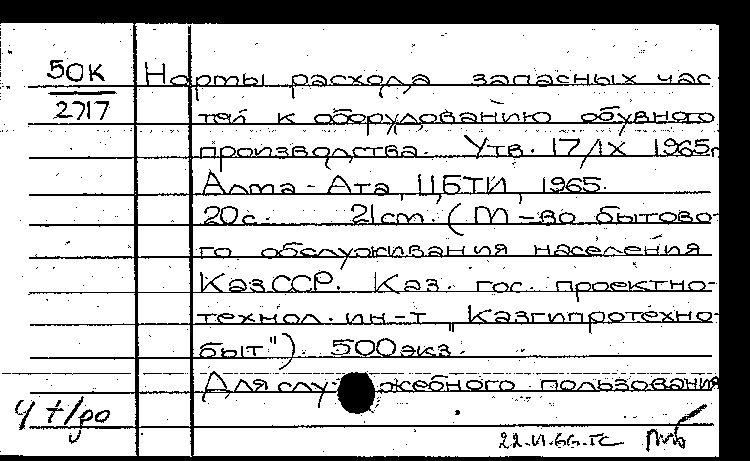 50К Нормы расхода запасных час
2717 тей к оборудованию обувного
производства. Утв. 17/IX 1965г
Алма-Ата, ЦБТИ, 1965.
20с. 21cm. (М-во бытово-
го обслуживания населения
КазССР. Каз. гос. проектно-
технол. ин-т "Казгипротехно-
быт"). 500экз.
Для служебного пользования
22.VI.66.